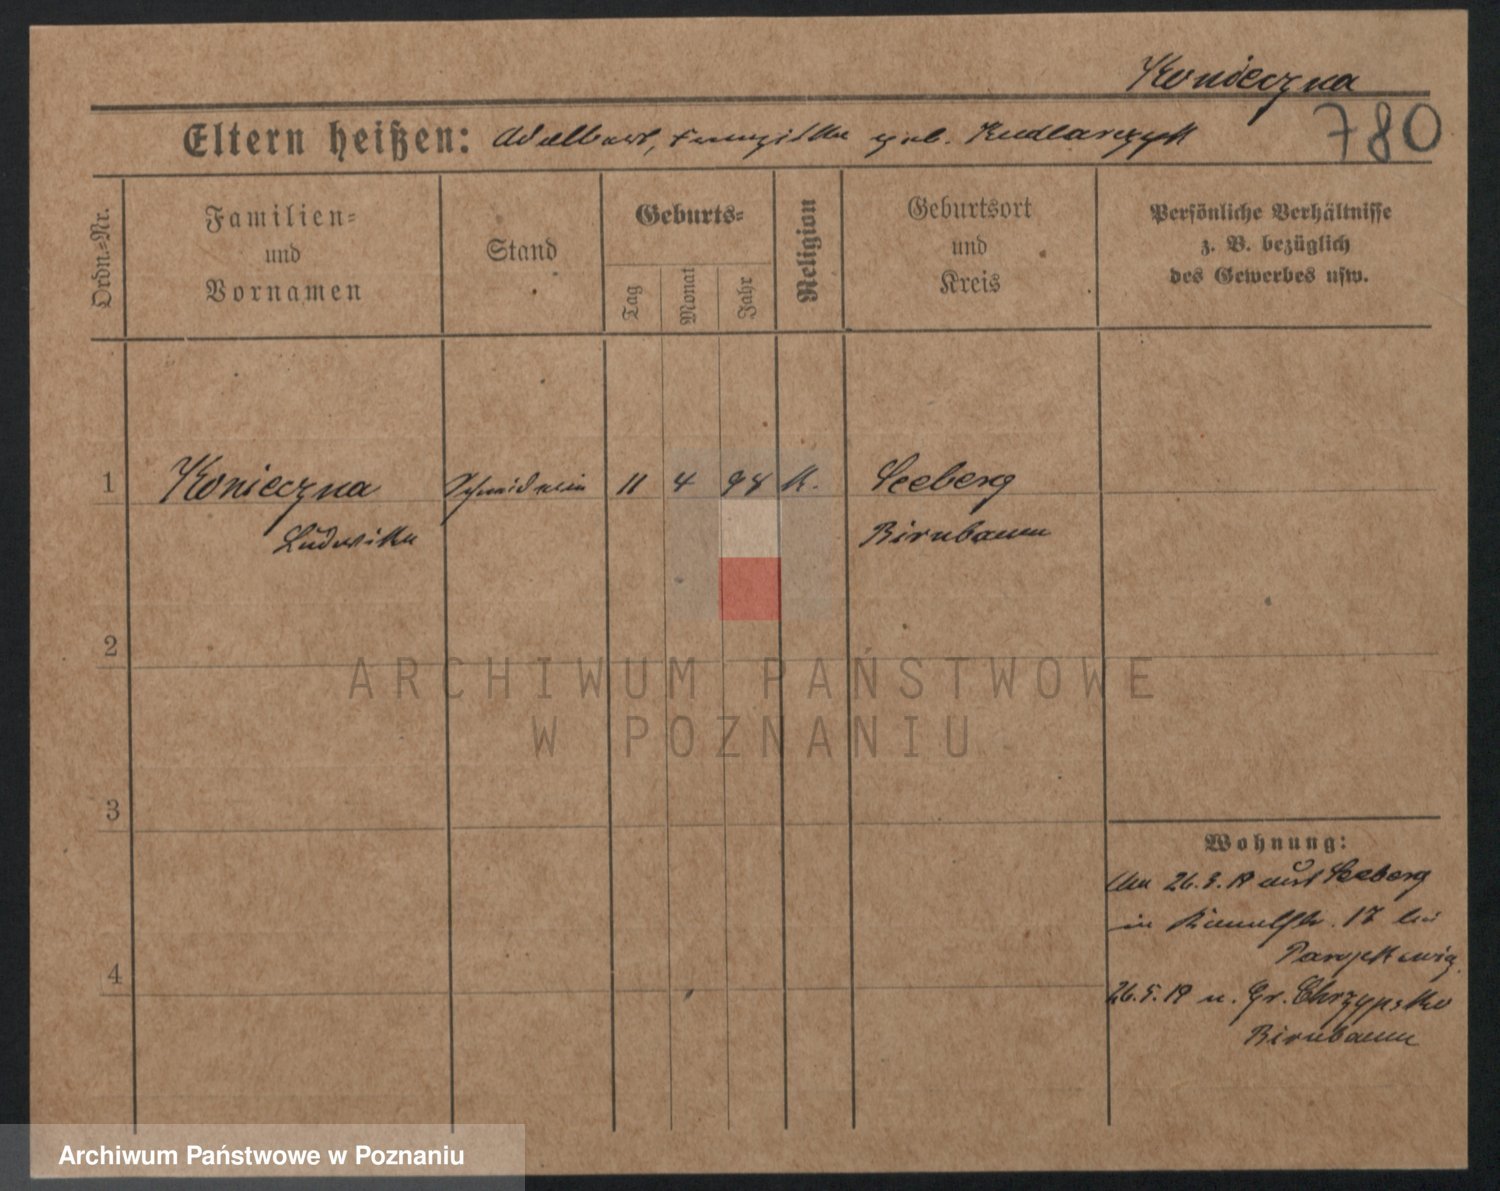 Konieczna
780
Eltern heißen: Adalbert, Franziska geb. Kudlarczyk
Ordn.-Nr.
Familien-
und
Vornamen
Stand
Geburts-
Tag
Monat
Jahr
Religion
Geburtsort
und
Kreis
Persönliche Verhältnisse
z. B. bezüglich
des Gewerbes usw.
1 Konieczna 11 4 94 K. Seeberg
Ludwika Birnbaum
2
3
4
Wohnung:
26.3.19 aus Seeberg
in 17 bei
26.5.19 n. Gr. Chrzypsko
Birnbaum
ARCHIWUM PAŃSTWOWE
W POZNANIU
Archiwum Państwowe w Poznaniu